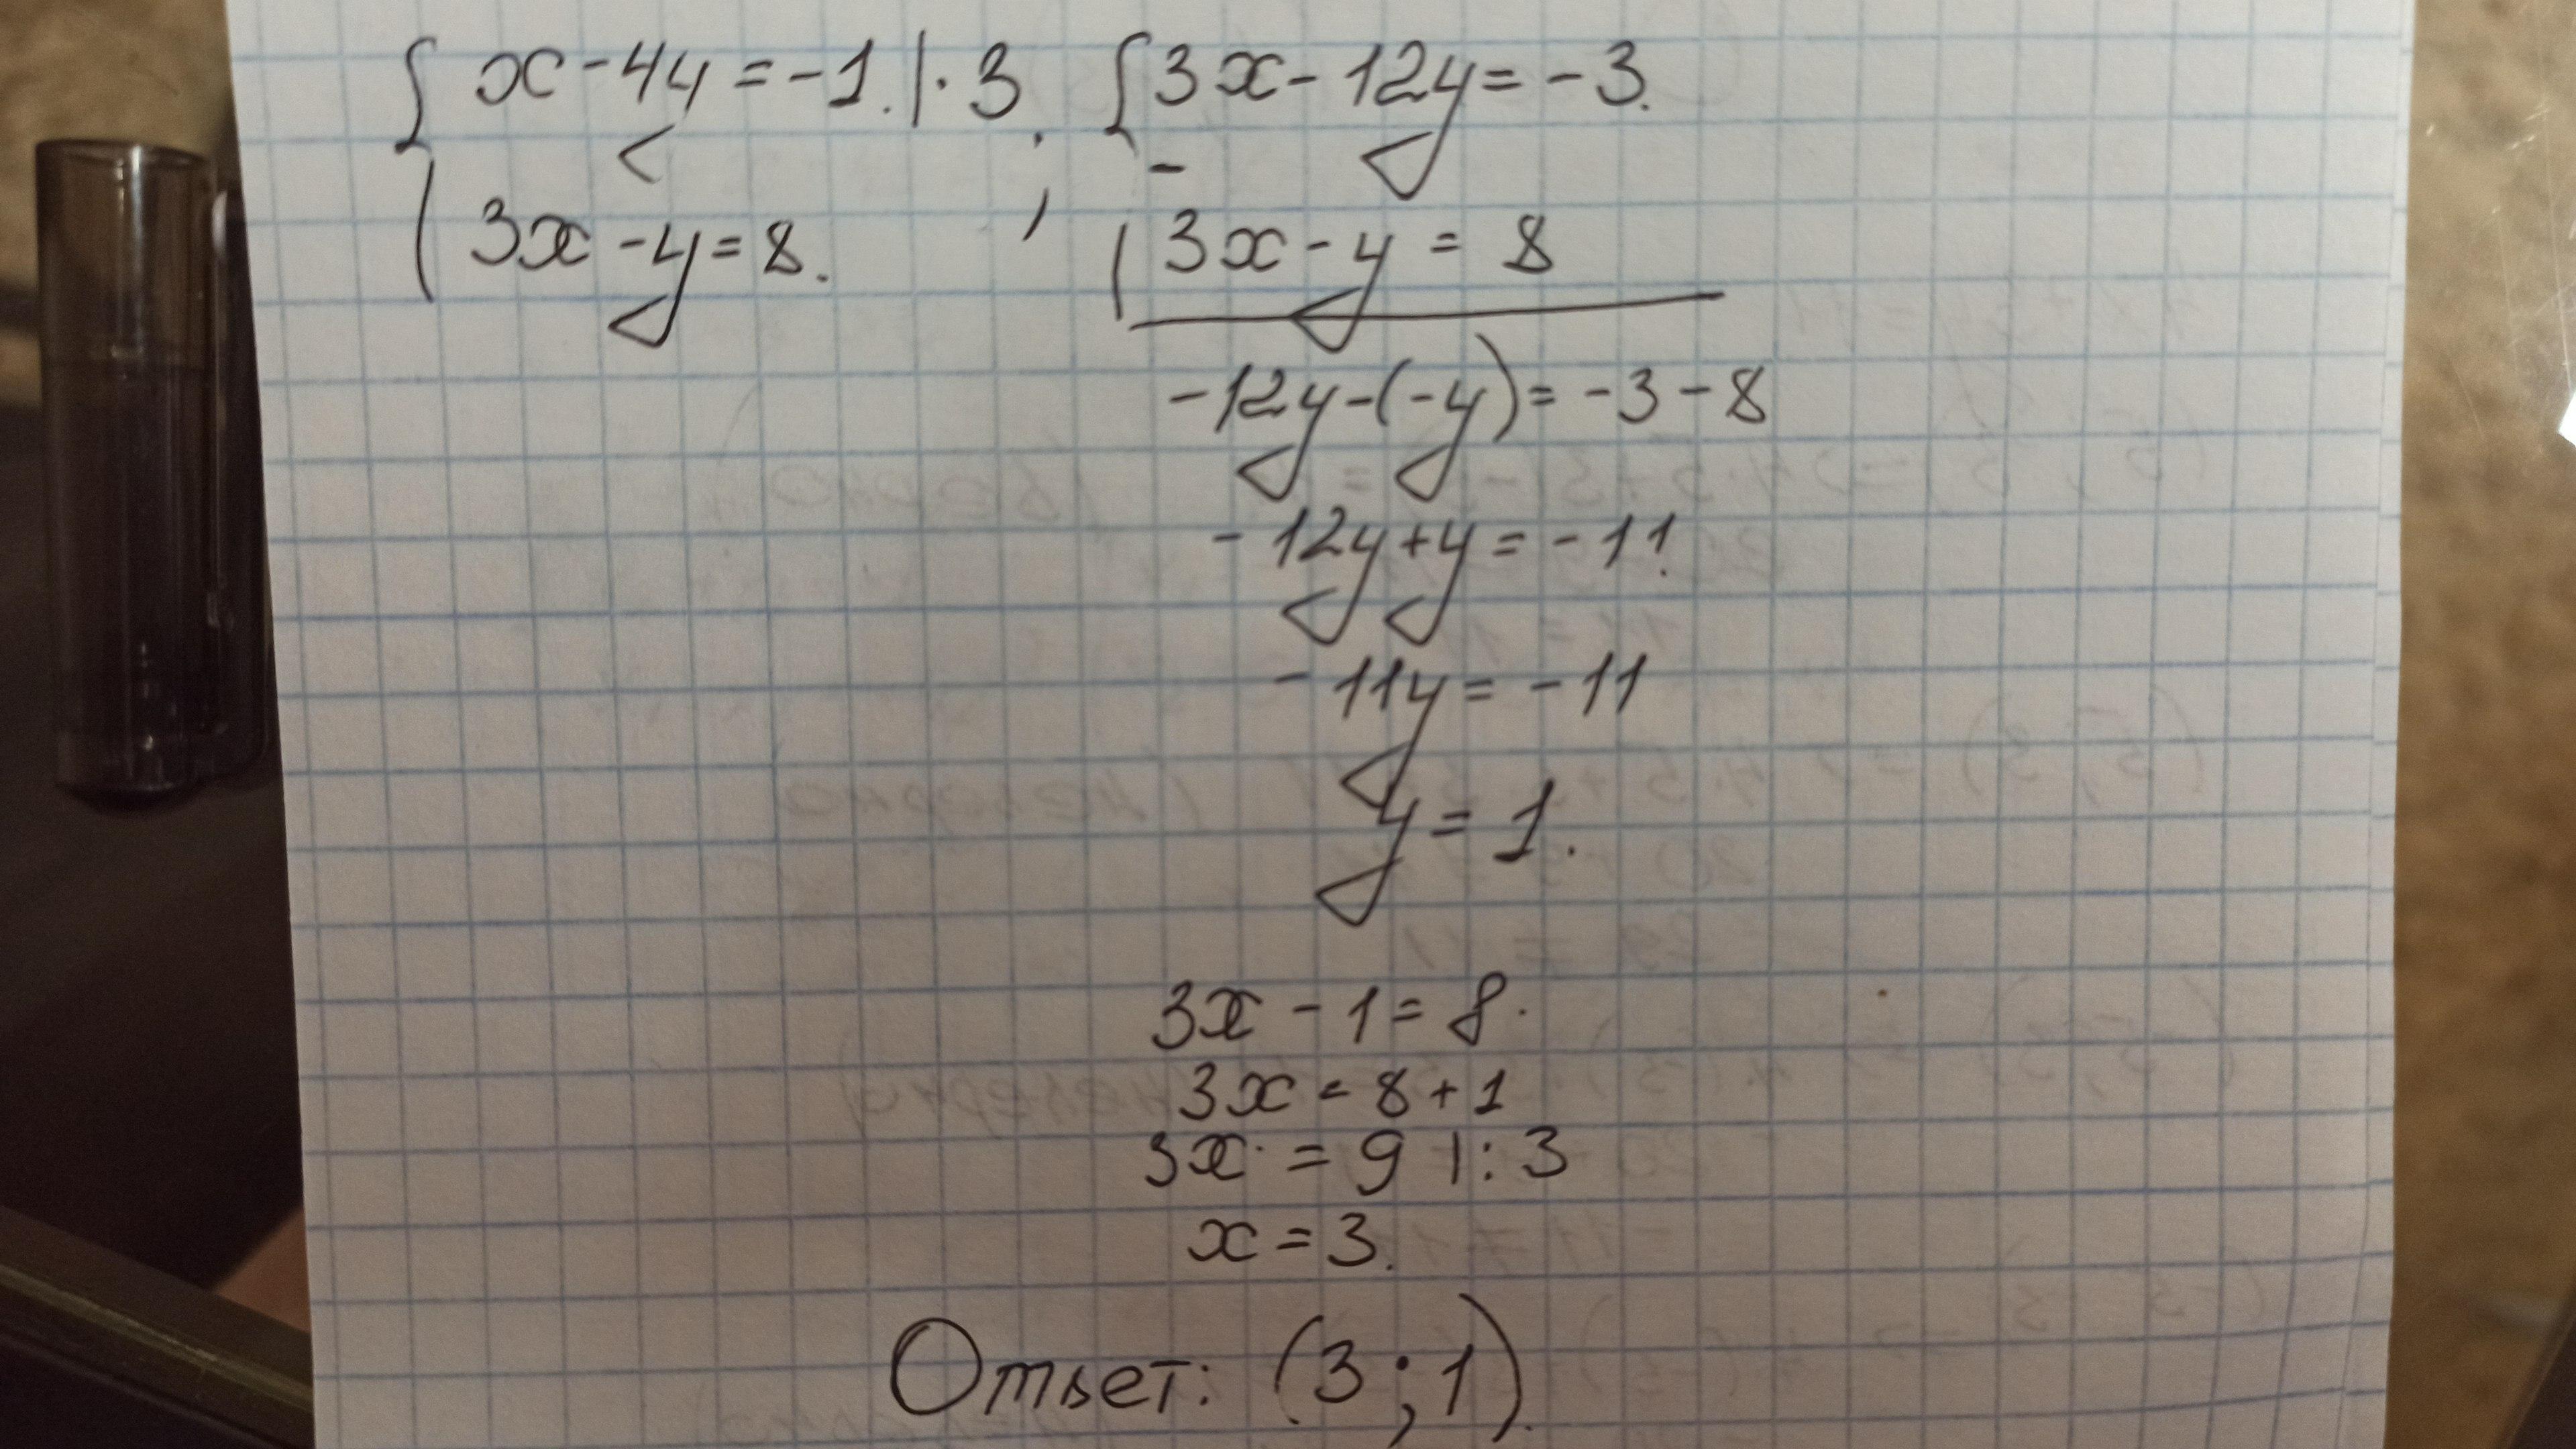 { x - 4y = -1. | · 3 ; { 3x - 12y = -3.
-
3x - y = 8. 3x - y = 8
-12y - (-y) = -3 - 8
-12y + y = -11.
-11y = -11
y = 1.
3x - 1 = 8.
3x = 8 + 1
3x = 9 | : 3
x = 3.
Ответ: (3 ; 1).